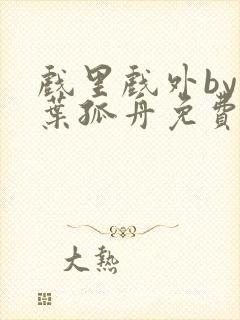 戲里戲外by
葉孤丹免費
大熱